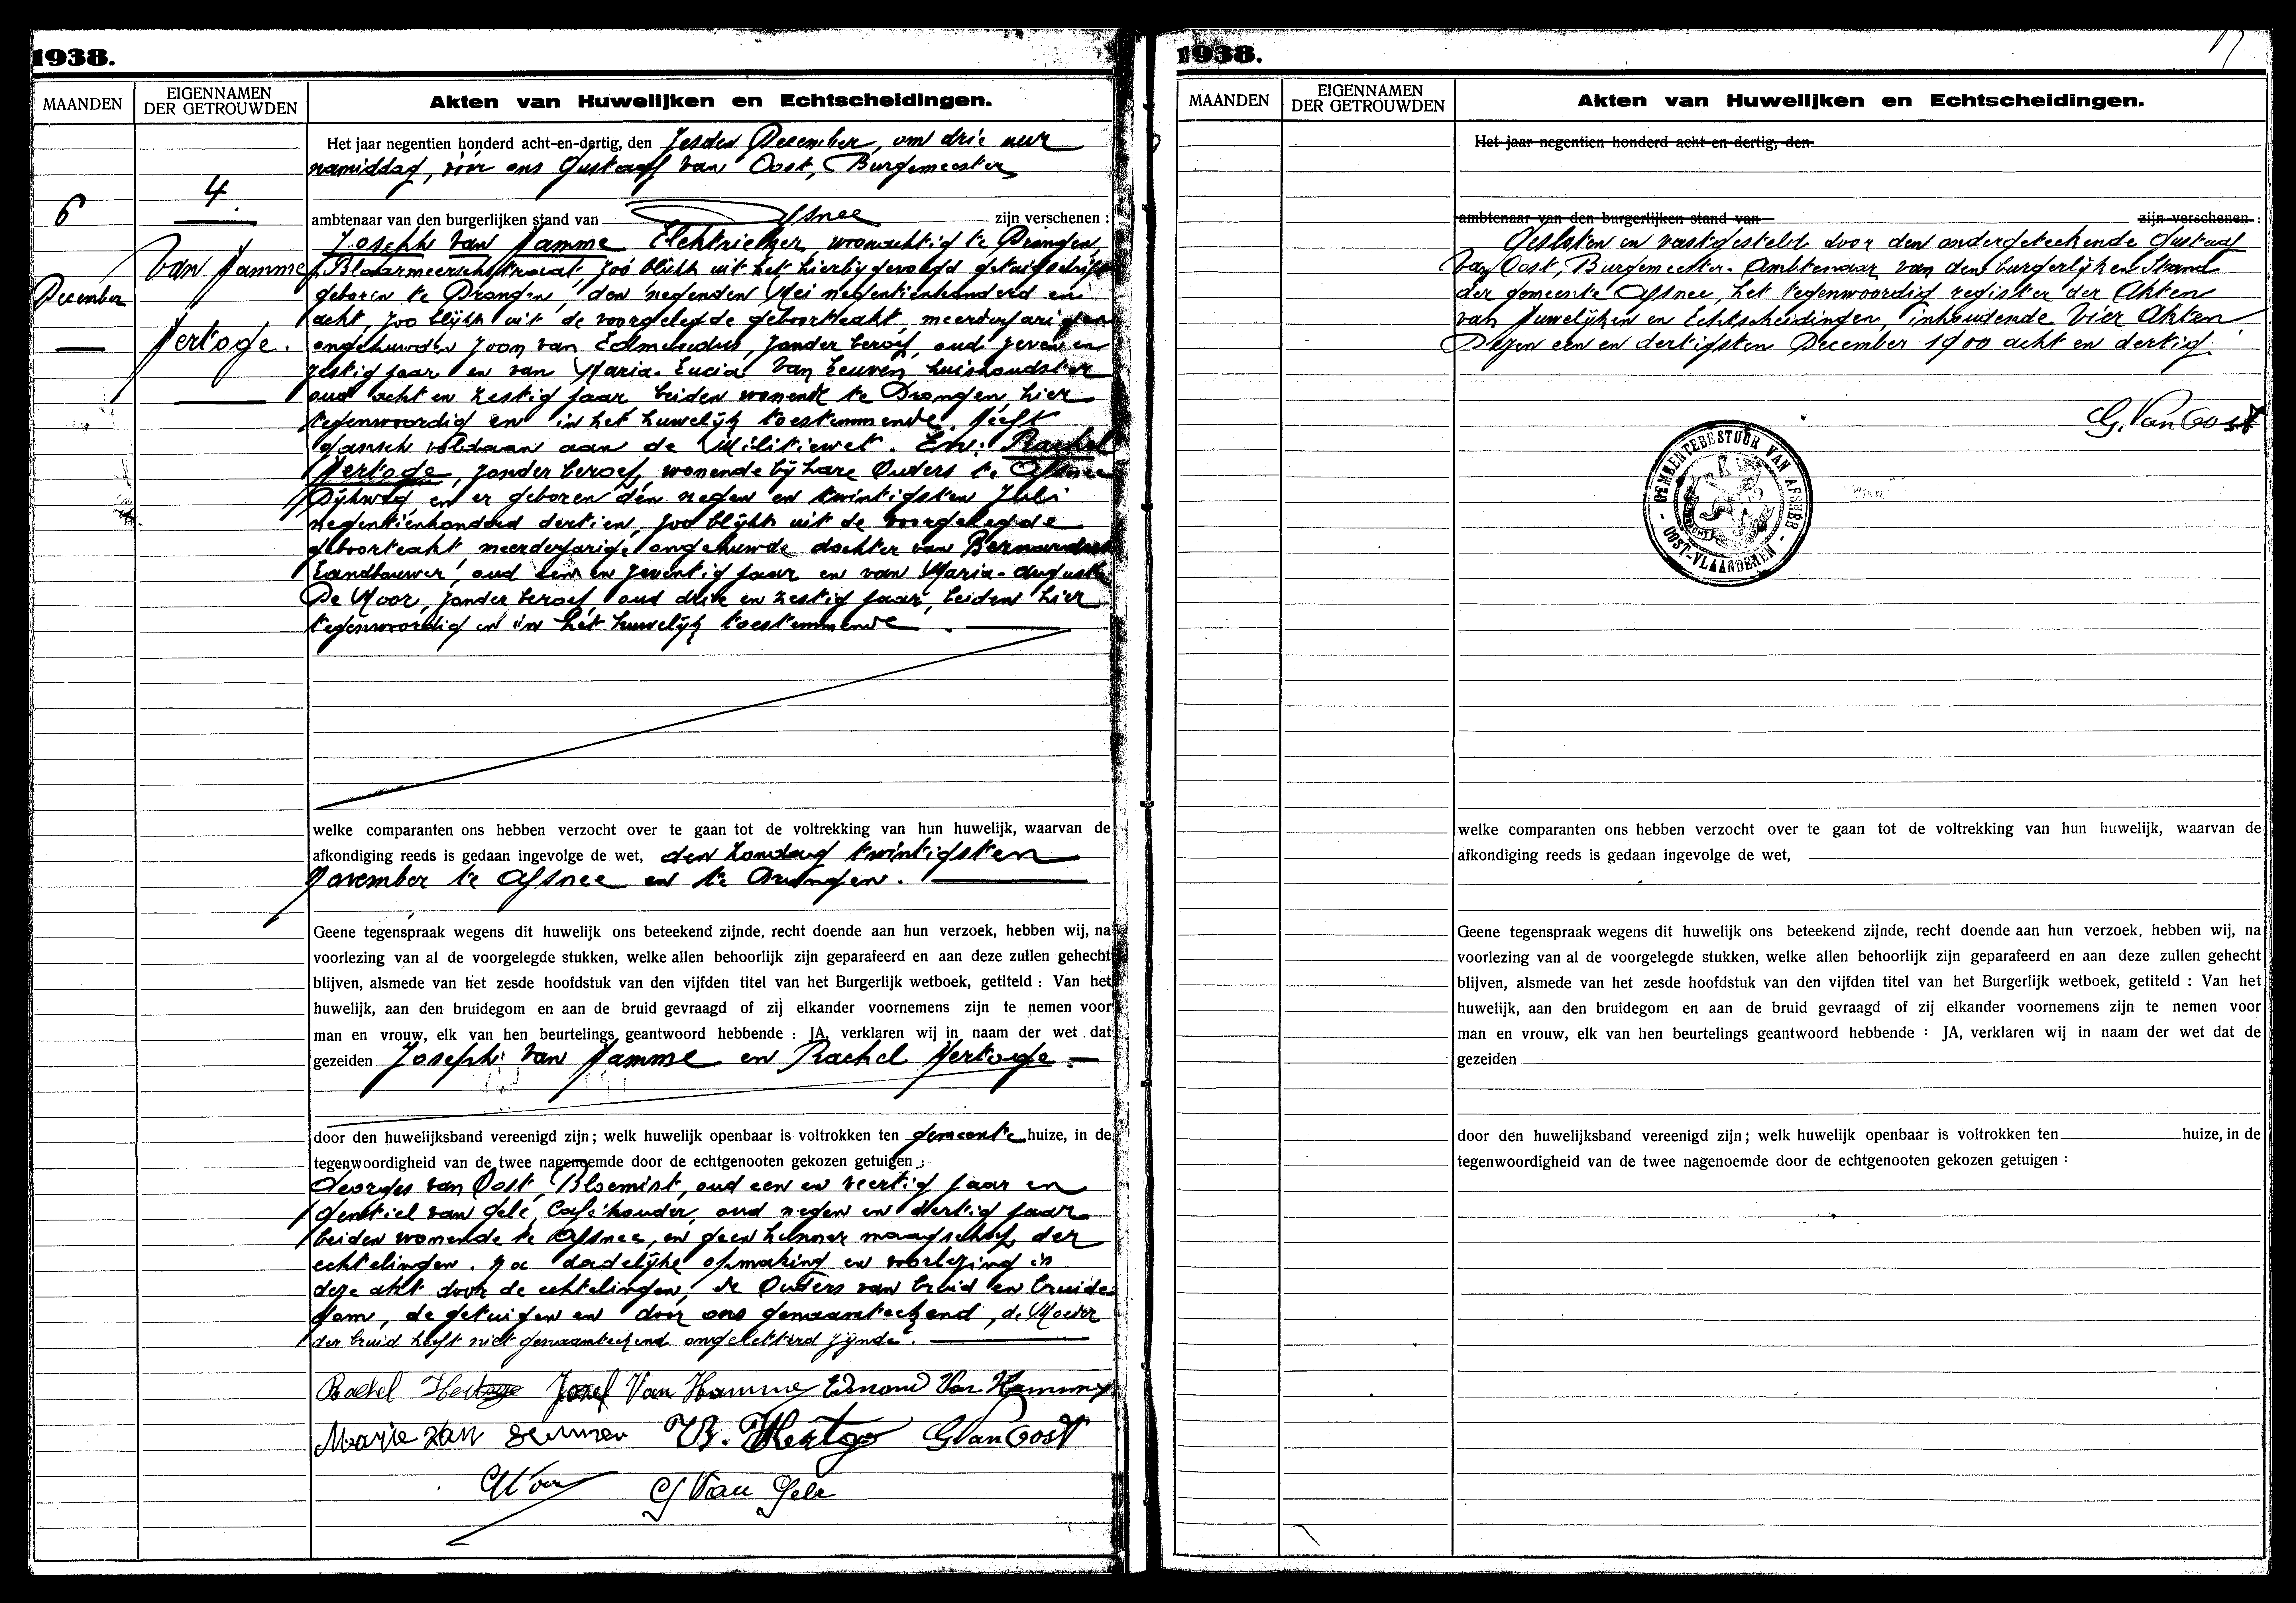 1938.
MAANDEN
EIGENNAMEN
DER GETROUWDEN
Akten van Huwelijken en Echtscheidingen.
6
December
4.
Van Hamme
Hertoge.
Het jaar negentien honderd acht-en-dertig, den zesden December, om drie uur
namiddag, vóór ons Gustaaf Van Oost, Burgemeester
ambtenaar van den burgerlijken stand van Afsnee zijn verschenen :
Joseph Van Hamme Elektrieker, woonachtig te Drongen,
Blaarmeerschstraat zoo blijkt uit het hierbijgevoegd getuigschrift
geboren te Drongen, den negenden Mei negentienhonderd en
acht, zoo blijkt uit de voorgelegde geboorteakt, meerderjarigen
ongehuwden zoon van Edmondus, zonder beroep, oud zeven en
zestig jaar en van Maria-Lucia Van Leuven huishoudster
oud acht en zestig jaar beiden wonende te Drongen, hier
tegenwoordig en in het huwelijk toestemmende. Heeft
gansch voldaan aan de Militiewet. En: Rachel
Hertoge, zonder beroep, wonende bij hare Ouders te Afsnee
Dijkweg, en er geboren den negen en twintigsten Juli
negentienhonderd dertien, zoo blijkt uit de voorgelegde
geboorteakt meerderjarige ongehuwde dochter van Bernardus
Landbouwer, oud een en zeventig jaar en van Maria-Augusta
De Moor, zonder beroep, oud drie en zestig jaar, beiden hier
tegenwoordig en in het huwelijk toestemmende.
welke comparanten ons hebben verzocht over te gaan tot de voltrekking van hun huwelijk, waarvan de
afkondiging reeds is gedaan ingevolge de wet, den Zondag twintigsten
November te Afsnee en te Drongen.
Geene tegenspraak wegens dit huwelijk ons beteekend zijnde, recht doende aan hun verzoek, hebben wij, na
voorlezing van al de voorgelegde stukken, welke allen behoorlijk zijn geparafeerd en aan deze zullen gehecht
blijven, alsmede van het zesde hoofdstuk van den vijfden titel van het Burgerlijk wetboek, getiteld : Van het
huwelijk, aan den bruidegom en aan de bruid gevraagd of zij elkander voornemens zijn te nemen voor
man en vrouw, elk van hen beurtelings geantwoord hebbende : JA, verklaren wij in naam der wet dat
gezeiden Joseph Van Hamme en Rachel Hertoge.
door den huwelijksband vereenigd zijn ; welk huwelijk openbaar is voltrokken ten gemeente huize, in de
tegenwoordigheid van de twee nagenoemde door de echtgenooten gekozen getuigen :
Georges Van Oost, Bloemist, oud een en veertig jaar en
Gentiel Van Gele, Caféhouder, oud negen en dertig jaar
beiden wonende te Afsnee, en geen hunner maagschap der
echtelingen. Na dadelijke opmaking en voorlezing is
deze akt door de echtelingen, de Ouders van bruid en bruide-
gom, de getuigen en door ons genaamteekend, de Moeder
der bruid heeft niet genaamteekend ongeletterd zijnde.
Rachel Hertoge Jozef Van Hamme Edmond Van Hamme
Marie Van Leuven B. Hertoge G Van Oost
G Van Gele
1938.
MAANDEN
EIGENNAMEN
DER GETROUWDEN
Akten van Huwelijken en Echtscheidingen.
Het jaar negentien honderd acht-en-dertig, den
ambtenaar van den burgerlijken stand van zijn verschenen :
Gesloten en vastgesteld door den ondergeteekende Gustaaf
Van Oost, Burgemeester. Ambtenaar van den burgerlijken Stand
der gemeente Afsnee, het tegenwoordig register der Akten
van Huwelijken en Echtscheidingen, inhoudende Vier Akten
Dezen een en dertigsten December 1900 acht en dertig.
G. Van Oost
GEMEENTEBESTUUR VAN AFSNEE
- OOST-VLAANDEREN -
welke comparanten ons hebben verzocht over te gaan tot de voltrekking van hun huwelijk, waarvan de
afkondiging reeds is gedaan ingevolge de wet,
Geene tegenspraak wegens dit huwelijk ons beteekend zijnde, recht doende aan hun verzoek, hebben wij, na
voorlezing van al de voorgelegde stukken, welke allen behoorlijk zijn geparafeerd en aan deze zullen gehecht
blijven, alsmede van het zesde hoofdstuk van den vijfden titel van het Burgerlijk wetboek, getiteld : Van het
huwelijk, aan den bruidegom en aan de bruid gevraagd of zij elkander voornemens zijn te nemen voor
man en vrouw, elk van hen beurtelings geantwoord hebbende : JA, verklaren wij in naam der wet dat de
gezeiden
door den huwelijksband vereenigd zijn ; welk huwelijk openbaar is voltrokken ten huize, in de
tegenwoordigheid van de twee nagenoemde door de echtgenooten gekozen getuigen :